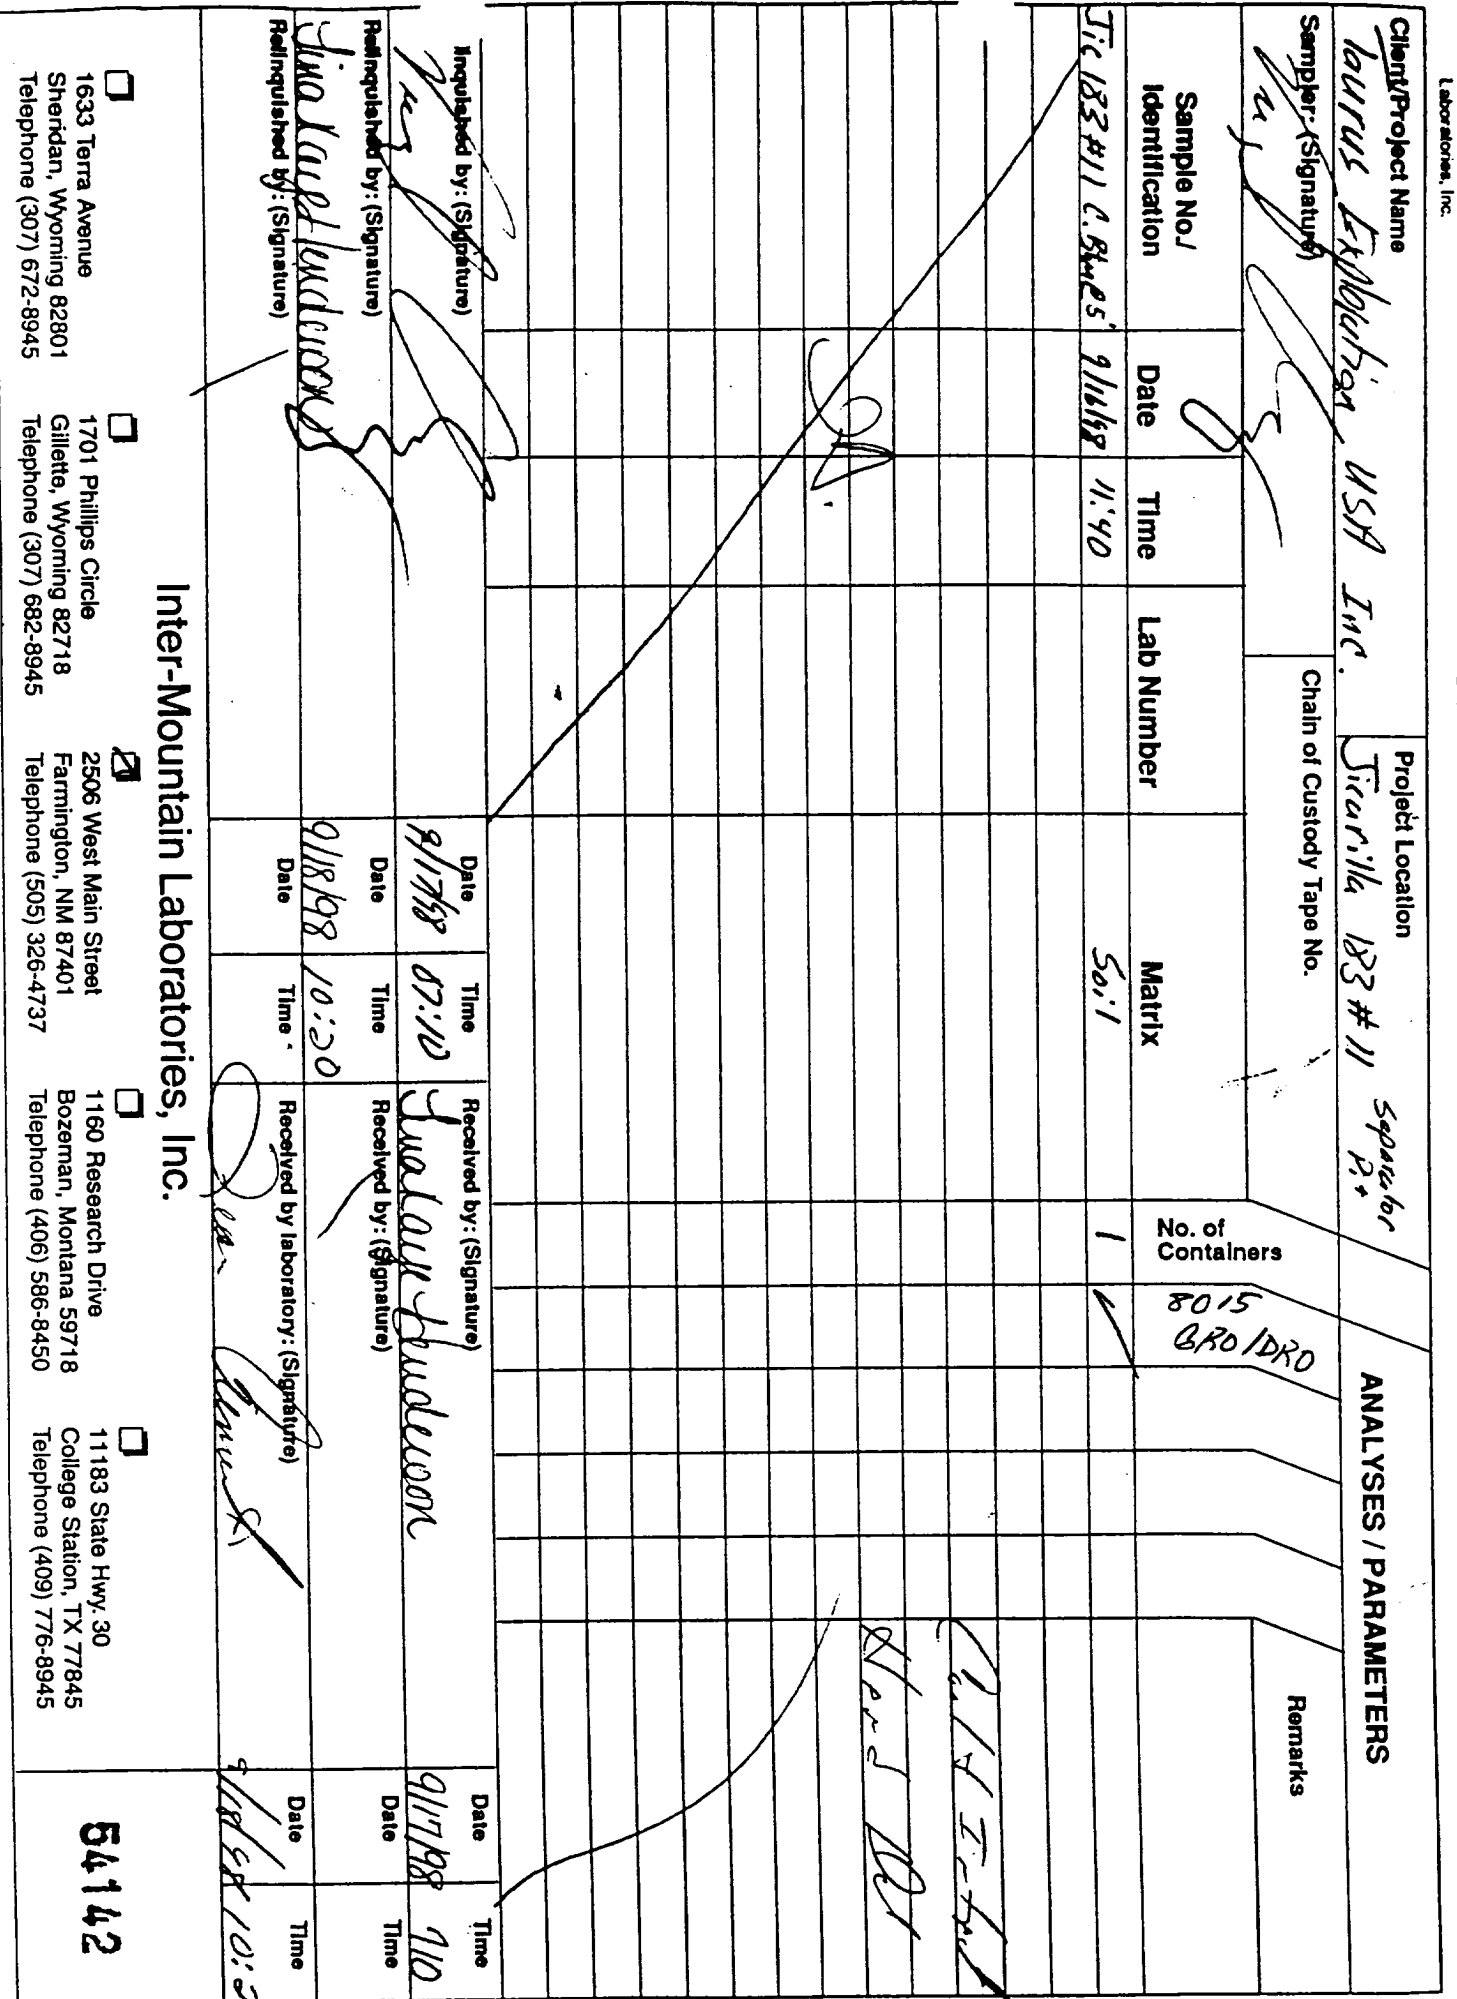 Laboratories, Inc.
Client/Project Name
Taurus Exploration USA Inc.
Project Location
Jicarilla 183 #11 Separator Pit
ANALYSES / PARAMETERS
Sampler: (Signature)
Chain of Custody Tape No.
No. of
Containers
8015
GRO/DRO
Remarks
Sample No./
Identification
Date
Time
Lab Number
Matrix
Jic 183 #11 C. 9/16/98 11:40 Soil 1 ✓
Inquished by: (Signature)
Date
9/17/98
Time
07:10
Received by: (Signature)
Tina Kaye Henderson
Date
9/17/98
Time
710
Relinquished by: (Signature)
Tina Kaye Henderson
Date
9/18/98
Time
10:20
Received by: (Signature)
Date
Time
Relinquished by: (Signature)
Date
Time
Received by laboratory: (Signature)
Date
9/18/98
Time
Inter-Mountain Laboratories, Inc.
1633 Terra Avenue
Sheridan, Wyoming 82801
Telephone (307) 672-8945
1701 Phillips Circle
Gillette, Wyoming 82718
Telephone (307) 682-8945
2506 West Main Street
Farmington, NM 87401
Telephone (505) 326-4737
1160 Research Drive
Bozeman, Montana 59718
Telephone (406) 586-8450
11183 State Hwy. 30
College Station, TX 77845
Telephone (409) 776-8945
54142